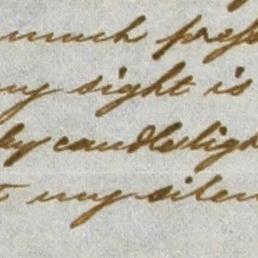 much pref
my sight is
by candleligh
t my silen